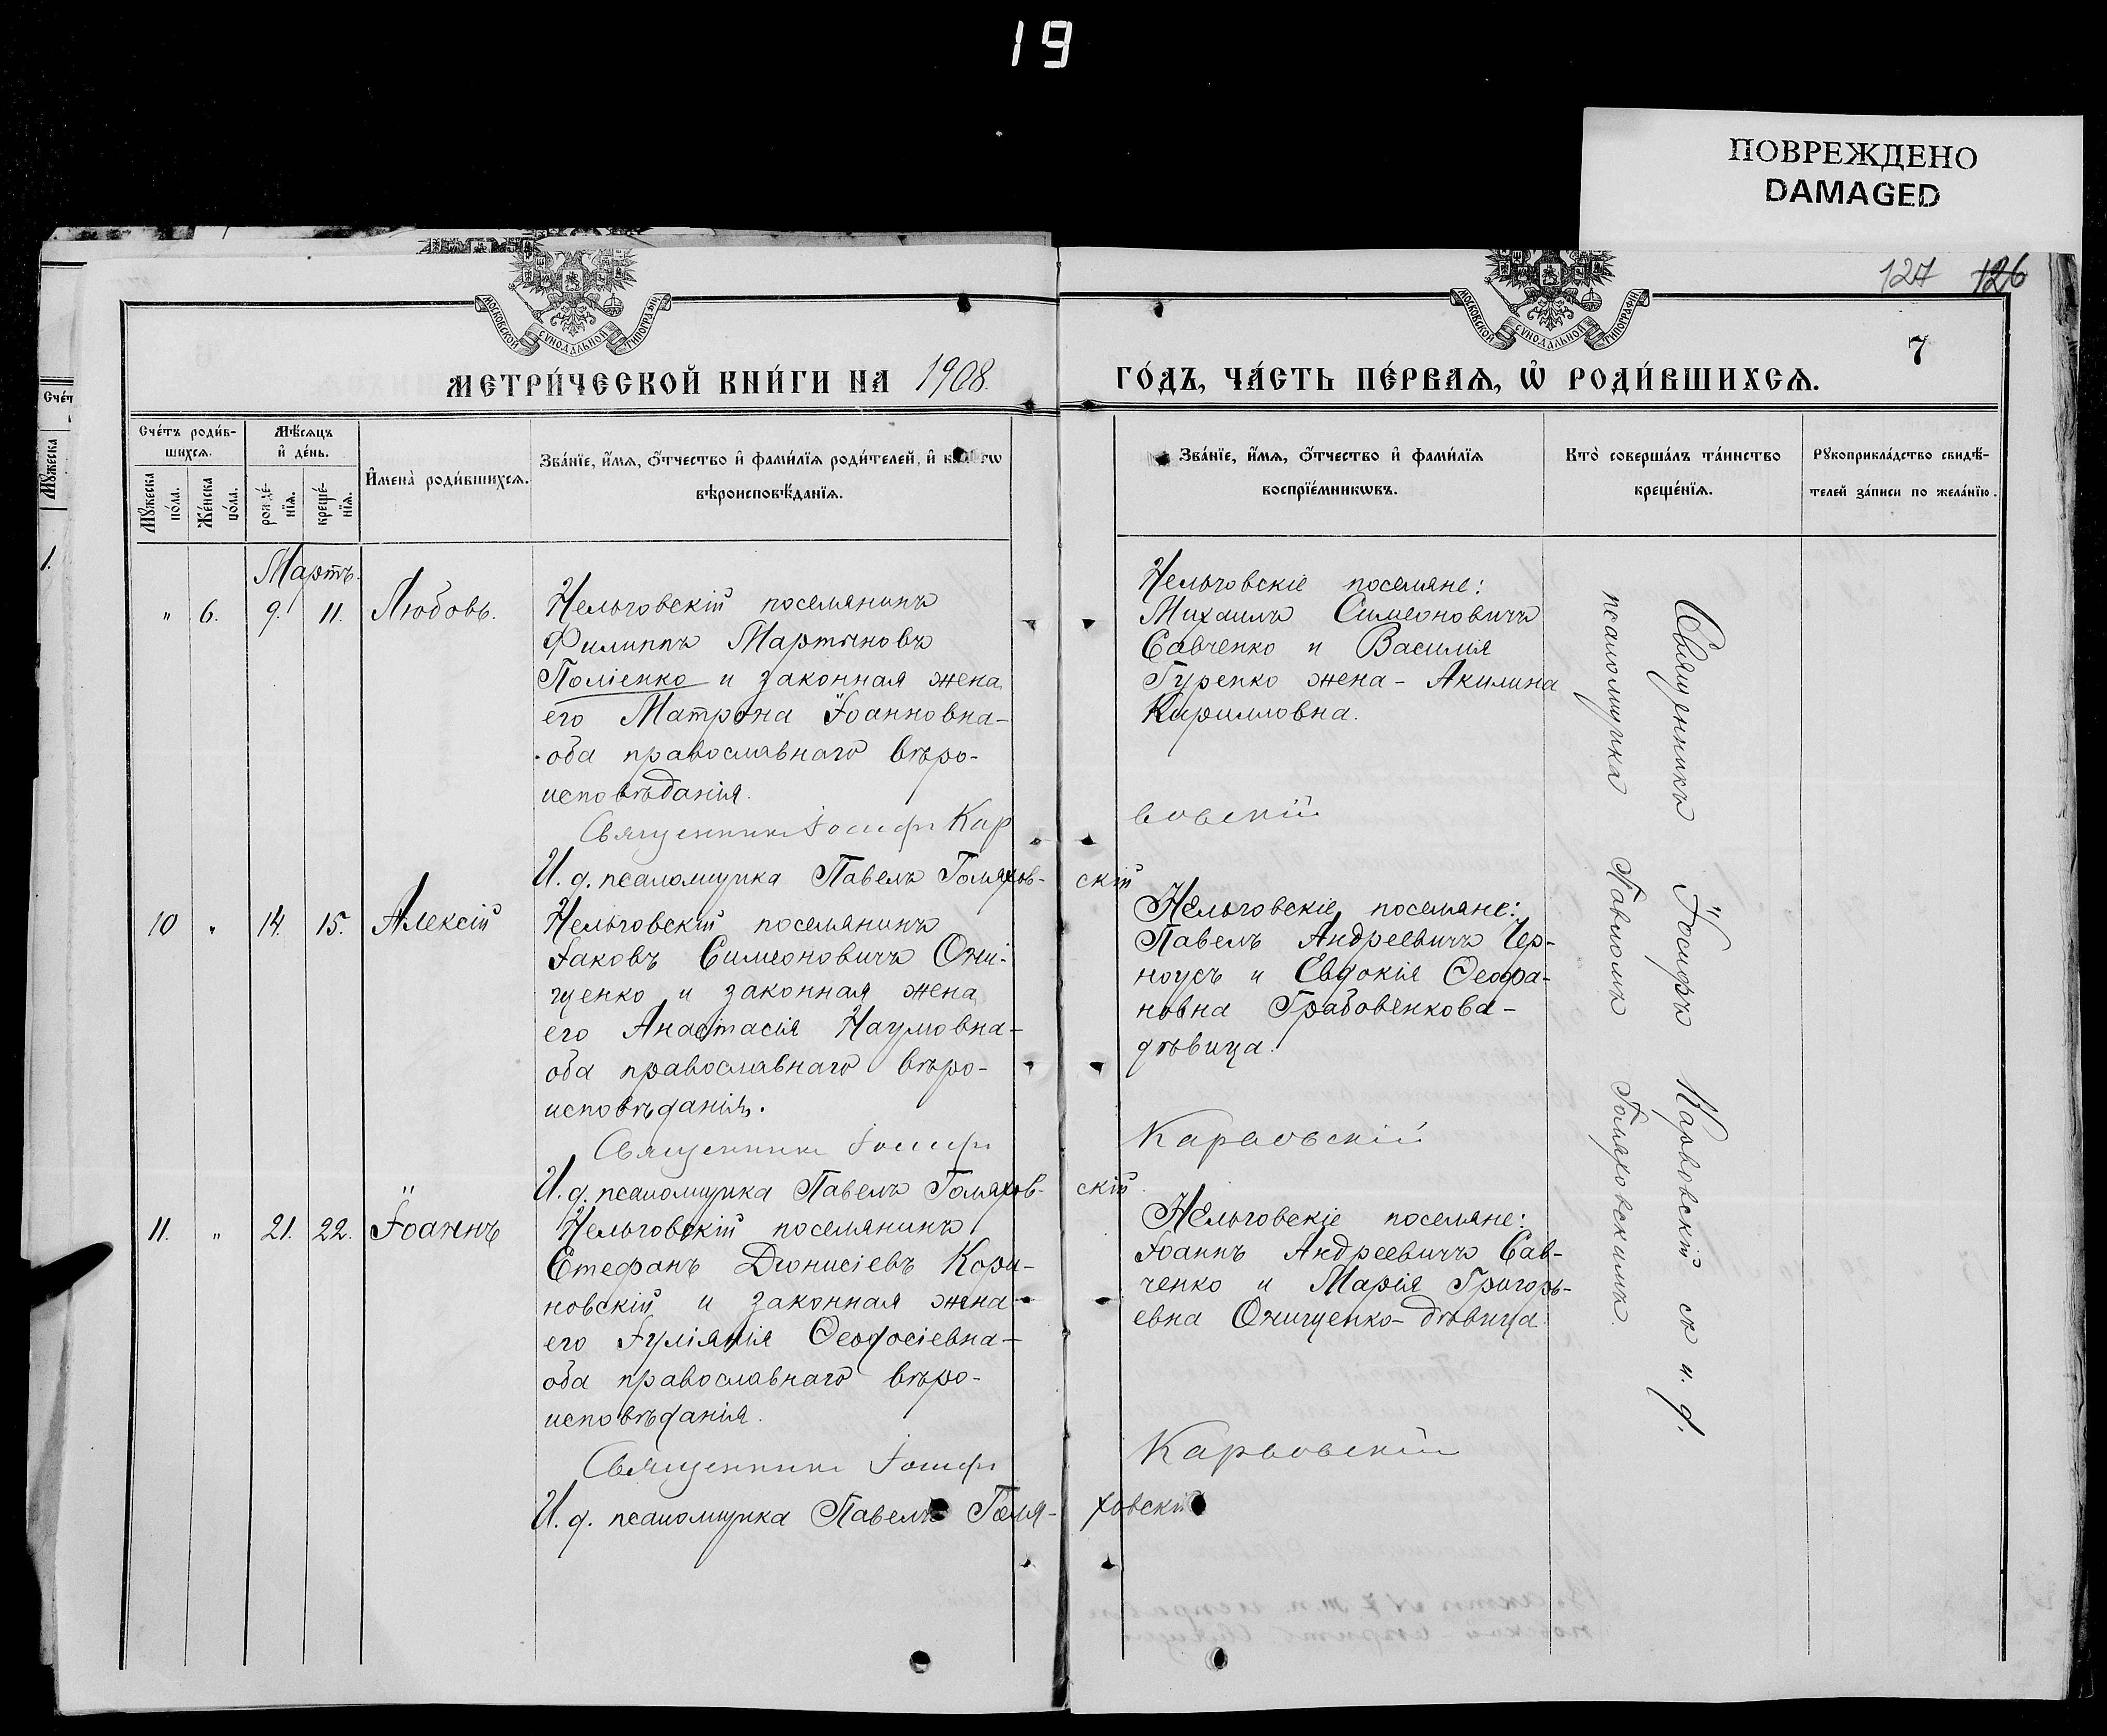 19
ПОВРЕЖДЕНО
DAMAGED
127 126
7
МОСКОВСКОЙ СѴНОДАЛЬНОЙ ТИПОГРАФІИ
МОСКОВСКОЙ СѴНОДАЛЬНОЙ ТИПОГРАФІИ
МЕТРИ́ЧЕСКОЙ КНИ́ГИ НА 1908. ГО́ДЪ, ЧА́СТЬ ПЕ́РВАѦ, Ѡ҆ РОДИ́ВШИХСѦ.
Сче́тъ роди́в-
шихсѧ.
Мꙋ́жеска по́ла.
Же́нска по́ла.
Мѣ́сѧцъ
и҆ де́нь.
рожде́-
нїѧ.
креще́-
нїѧ.
И҆мена̀ роди́вшихсѧ.
Зва́нїе, и҆́мѧ, ѻ҆́тчество и҆ фами́лїѧ роди́телей, и҆
вѣроисповѣ́данїѧ.
Зва́нїе, и҆́мѧ, ѻ҆́тчество и҆ фами́лїѧ
воспрїе́мникѡвъ.
Кто̀ соверша́лъ та́инство
креще́нїѧ.
Рꙋкоприкла́дство свидѣ́-
телей за́писи по жела́нїю.
Мартъ.
" 6. 9. 11. Любовь.
Нельговскій поселянинъ
Филиппъ Мартыновъ
Поліенко и законная жена
его Матрона Іоанновна-
оба православнаго вѣро-
исповѣданія.
Священникъ Іосифъ Кар
вовскій
И. д. псаломщика Павелъ Голяхов-
скій
Нельговскіе поселяне:
Михаилъ Симеоновичъ
Савченко и Василія
Гуренко жена - Акилина
Кирилловна.
10 " 14. 15. Алексій
Нельговскій поселянинъ
Іаковъ Симеоновичъ Они-
щенко и законная жена
его Анастасія Наумовна-
оба православнаго вѣро-
исповѣданія.
Священникъ Іосифъ
Карвовскій
И. д. псаломщика Павелъ Голяхов-
скій
Нельговскіе поселяне:
Павелъ Андреевичъ Чер-
ноусъ и Евдокія Ѳеофа-
новна Грабовенкова-
дѣвица.
11. " 21. 22. Іоаннъ
Нельговскій поселянинъ
Стефанъ Діонисіевъ Кори-
новскій и законная жена
его Іуліянія Ѳеодосіевна-
оба православнаго вѣро-
исповѣданія.
Священникъ Іосифъ
Карвовскій
И. д. псаломщика Павелъ Голя-
ховскій
Нельговскіе поселяне:
Іоаннъ Андреевичъ Сав-
ченко и Марія Григорь-
евна Онищенко-дѣвица.
Священникъ Іосифъ Карвовскій съ и. д.
псаломщика Павломъ Голяховскимъ
Сче́т
Мꙋ́жеска
1.